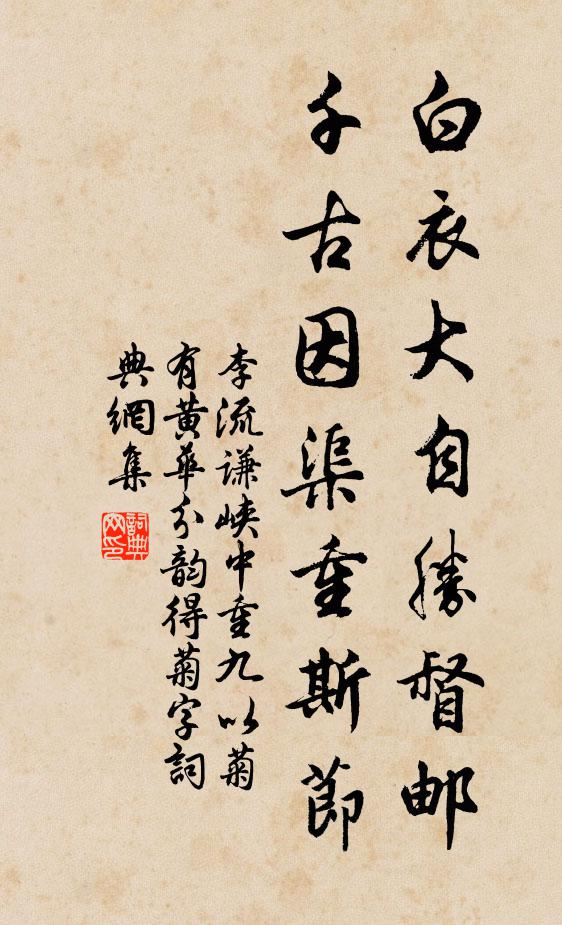 白衣大自勝督邮
千古因渠重斯節
李流謙峽中重九以菊
有黄華分韵得菊字詞
典網集
詞典
网印